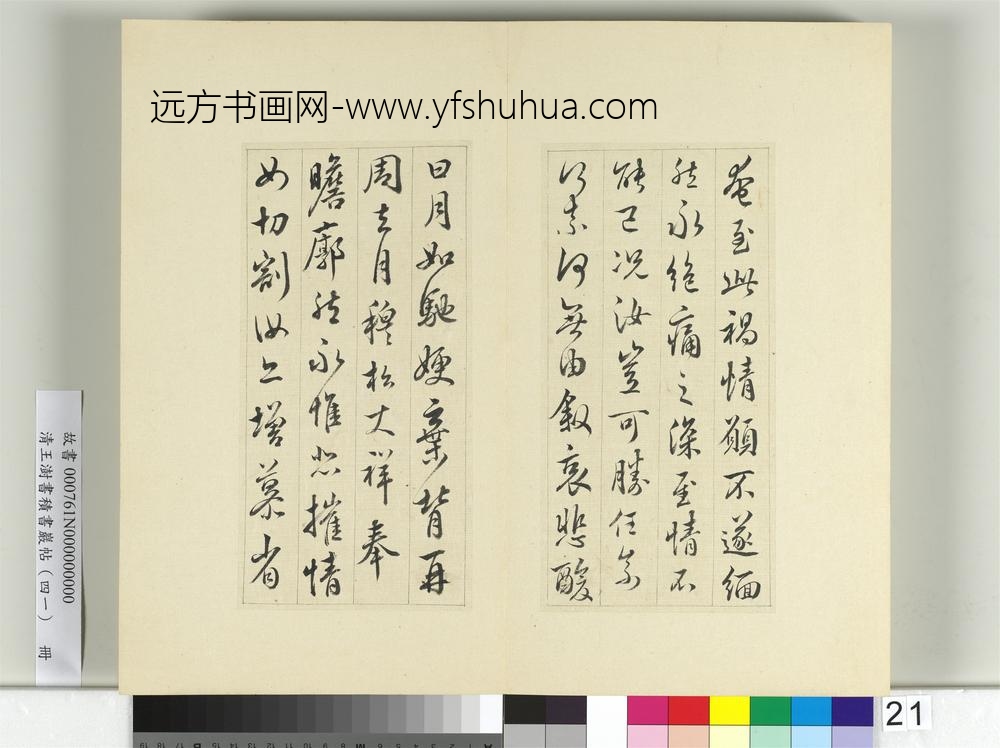 远方书画网-www.yfshuhua.com
奄至此禍情願不遂緬
然永絕痛之深至情不
能已況汝豈可勝任奈
何奈何無由叙哀悲酸
日月如馳嫂棄背再
周去月穆松大祥奉
瞻廓然永惟悲摧情
如切割汝亦增慕省
故書 000761N000000000
清王澍書積書巖帖(四一) 冊
21